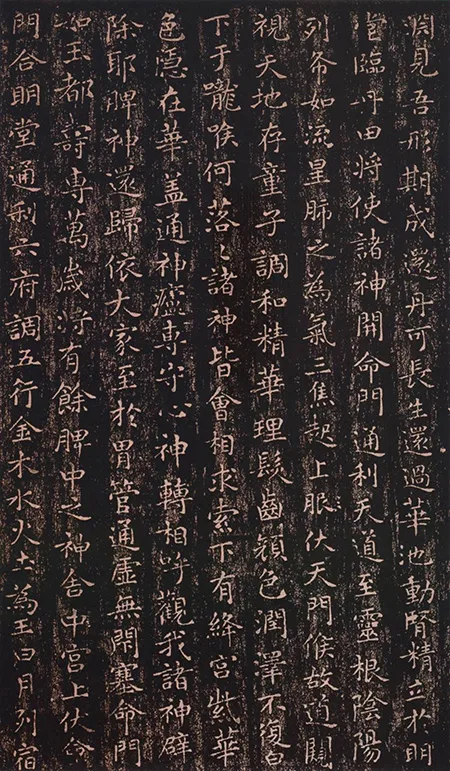 淵見吾形期成還丹可長生還過華池動腎精立於明
堂臨丹田將使諸神開命門通利天道至靈根陰陽
列布如流星肺之為氣三焦起上服伏天門候故道闚
視天地存童子調和精華理髮齒顏色潤澤不復白
下于嚨喉何落々諸神皆會相求索下有絳宮紫華
色隱在華蓋通神廬專守心神轉相呼觀我諸神辟
除耶脾神還歸依大家至於胃管通虛無閇塞命門
如玉都壽專萬歲將有餘脾中之神舍中宮上伏命
門合明堂通利六府調五行金木水火土為王日月列宿